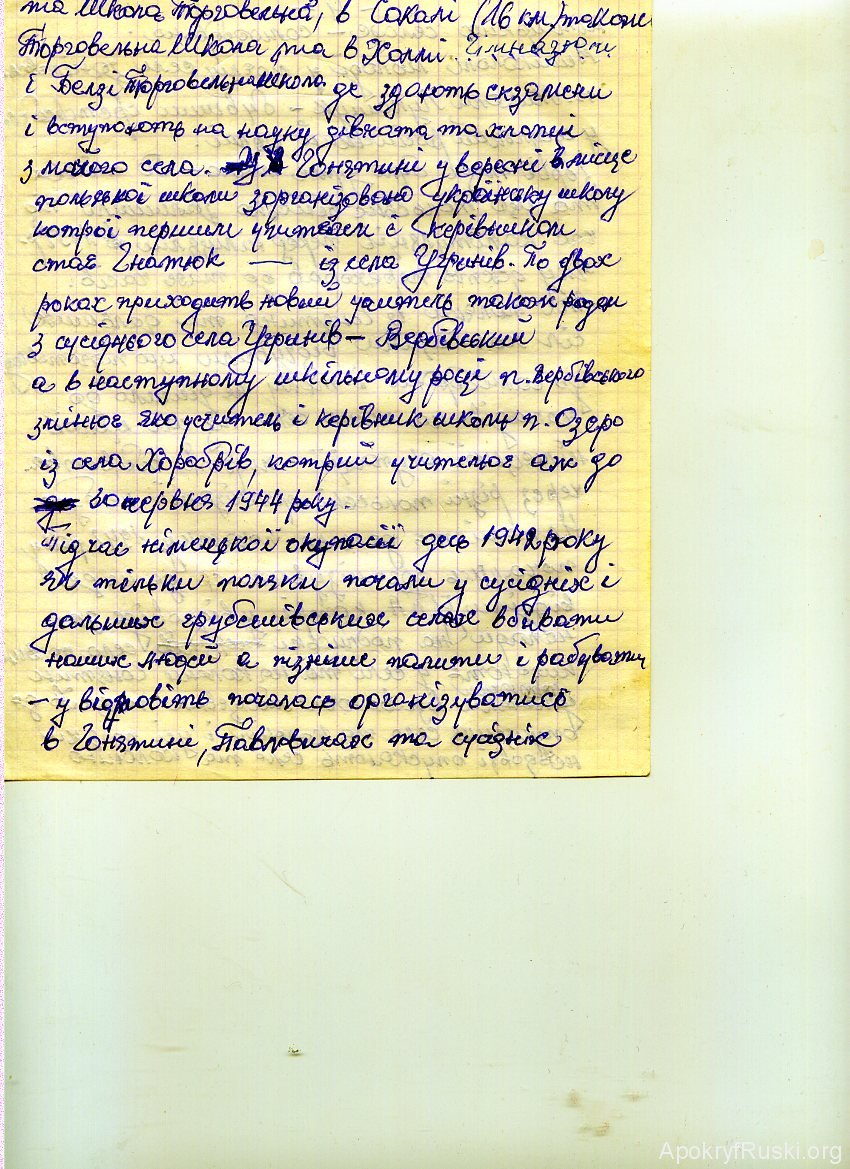 та Школа Торговельна, в Сокалі (16 км) також
Торговельна Школа, та в Холмі Гімназіюм
і Белзі Торговельна школа де здають екзамени
і вступають на науку дівчата та хлопці
з мойого села. У Гонятині у вересні в місце
польської школи зорганізовано українську школу
котрої першим учителем і керівником
стає Гнатюк — із села Угринів. По двох
роках приходить новий учитель також родом
з сусіднього села Угринів – Вербівський
а в наступному шкільному році п. Вербівського
змінює яко учитель і керівник школи п. Озеро
із села Хоробрів, котрий учителює аж до
30 червня 1944 року.
Підчас німецкої окупації десь 1942 року
як тільки поляки почали у сусідніх і
дальших грубешівських селах вбивати
наших людей а пізніше палити і рабувати
– у відповіть почалась організуватись
в Гонятині, Павловичах та сусідніх
ApokryfRuski.org